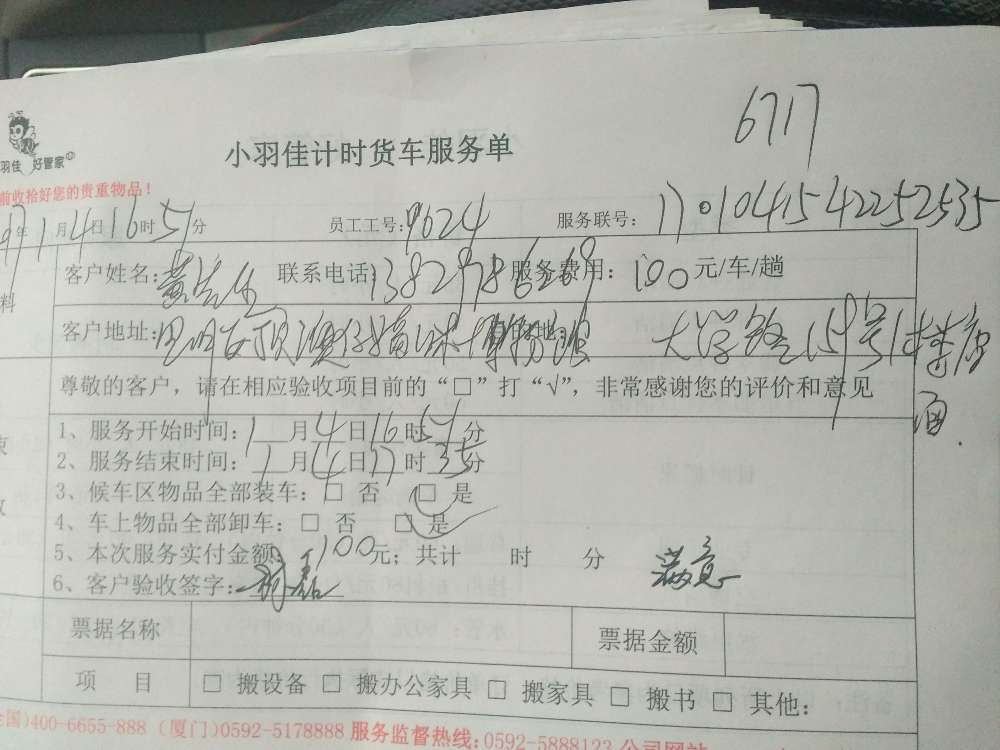 6717
小羽佳计时货车服务单
羽佳 好管家
前收拾好您的贵重物品！
年1月4日16时51分 员工工号：9624 服务联号：1701041542252535
料 客户姓名： 联系电话：13829786269 服务费用：100元/车/趟
客户地址： 大学路159号
尊敬的客户，请在相应验收项目前的“□”打“√”，非常感谢您的评价和意见
1、服务开始时间：1月4日16时51分
2、服务结束时间：1月4日17时35分
3、候车区物品全部装车：□ 否 □ 是
4、车上物品全部卸车：□ 否 □ 是
5、本次服务实付金额 100元；共计 时 分 满意
6、客户验收签字：
票据名称 票据金额
项 目 □ 搬设备 □ 搬办公家具 □ 搬家具 □ 搬书 □ 其他：
国)400-6655-888 (厦门)0592-5178888 服务监督热线：0592-5888123 公司网站